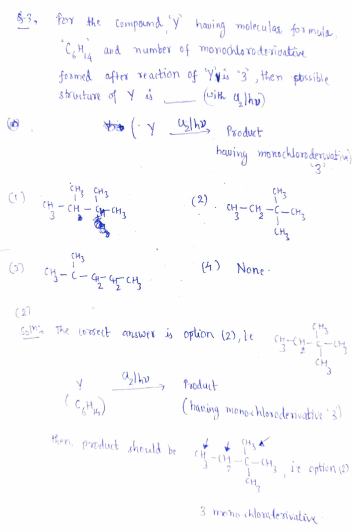 Q.3. For the compound 'Y' having molecular formula,
"C6H14" and number of monochloroderivative
formed after reaction of 'Y' is '3', then possible
structure of Y is ____ (with Cl2/hν)
( Y Cl2/hν → Product
having monochloroderivative)
'3'
(1) CH3 - CH - CH - CH3
CH3 CH3
(2) CH3 - CH2 - C - CH3
CH3
CH3
(3) CH3 - C - CH2 - CH2 - CH3
CH3
(4) None.
(2)
Solⁿ: The correct answer is option (2), ie CH3 - CH2 - C - CH3
CH3
CH3
Y Cl2/hν → Product
(C6H14) (having monochloroderivative '3')
then, product should be CH3 - CH2 - C - CH3, ie option (2)
CH3
CH3
3 monochloroderivative.